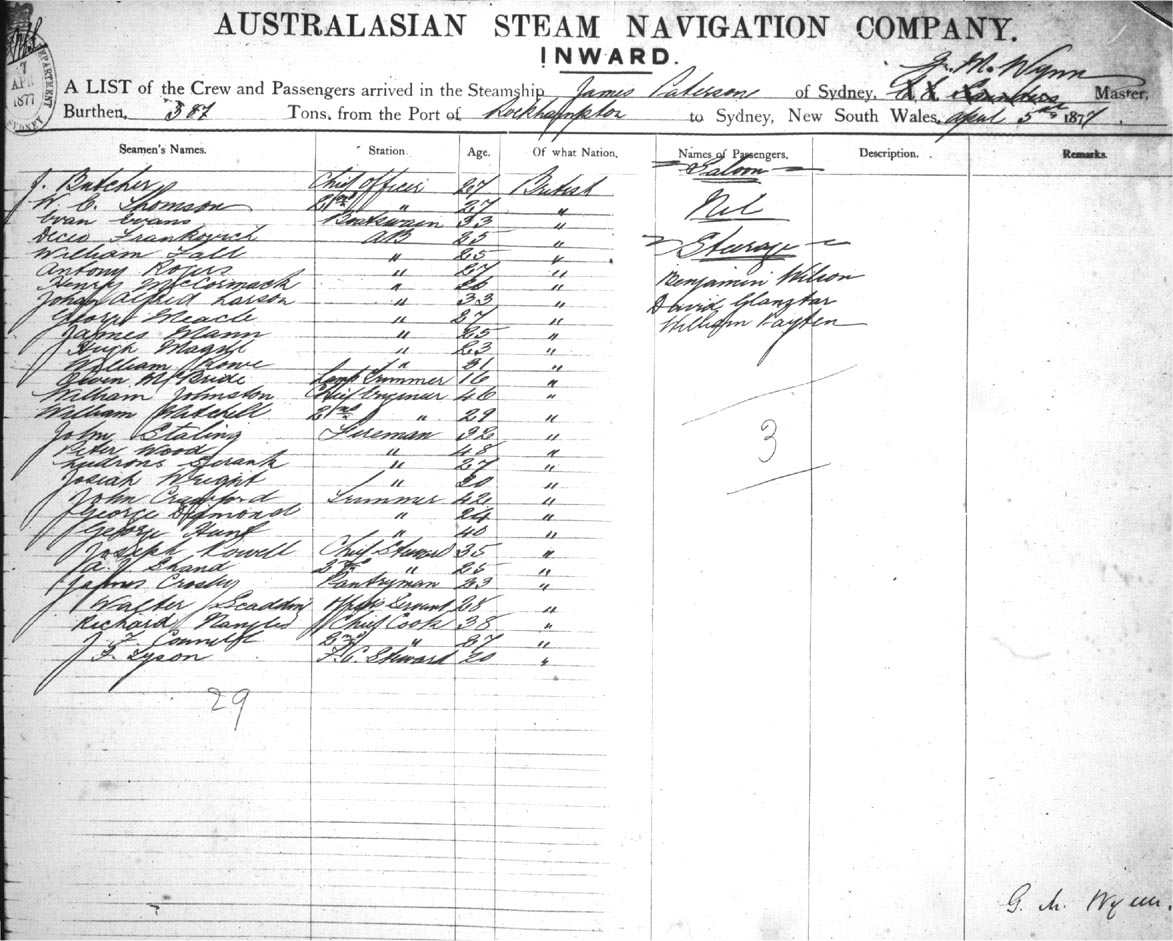 AUSTRALASIAN STEAM NAVIGATION COMPANY.
INWARD.
7
APR
1877
DEPARTMENT
SYDNEY
G. M. Wynn
A LIST of the Crew and Passengers arrived in the Steamship James Paterson of Sydney, Master,
Burthen, 387 Tons, from the Port of Rockhampton to Sydney, New South Wales, April 5th 1877
Seamen's Names. Station. Age. Of what Nation. Names of Passengers. Description. Remarks.
Saloon
J. Butcher Chief Officer 27 British
W. C. Thomson 2nd " 27 " Nil
Evan Evans Boatswain 33 "
Decio Frankovich AB 25 " Steerage
William Tall " 25 "
Antony Rogers " 27 " Benjamin Wilson
Henry McCormack " 26 "
Johan Alfred Larson " 33 " David
George Meacle " 27 " William Payten
James Mann " 25 "
Hugh " 23 "
William Rowe " 31 "
Owen McBride Lamp Trimmer 16 "
William Johnston Chief Engineer 46 "
William 2nd " 29 "
John Staling Fireman 32 "
3
Peter Wood " 48 "
" 27 "
Josiah Wright " 30 "
John Crawford Trimmer 42 "
George Desmond " 24 "
George Hunt " 40 "
Joseph Rowell Chief Steward 35 "
Shand 2nd " 25 "
James Crosby Pantryman 23 "
Walter Scadding Servant 28 "
Richard Chief Cook 38 "
J. F. 2nd " 27 "
F. Tyson F.C. Steward 20 "
29
G. M. Wynn.